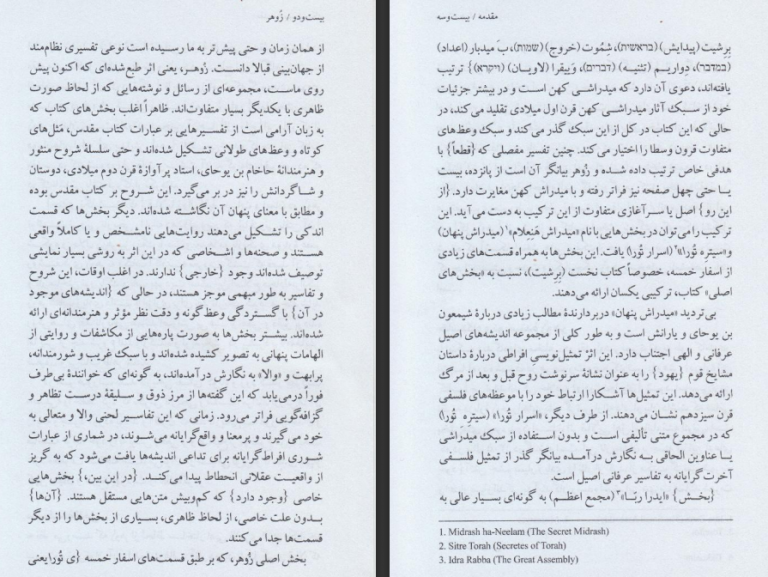 بیست‌ودو / زُوهر
از همان زمان و حتی پیش‌تر به ما رسیده است نوعی تفسیری نظام‌مند
از جهان‌بینی قبالا دانست. زُوهر، یعنی اثر طبع‌شده‌ای که اکنون پیش
روی ماست، مجموعه‌ای از رسائل و نوشته‌هایی که از لحاظ صورت
ظاهری با یکدیگر بسیار متفاوت‌اند. ظاهراً اغلب بخش‌های کتاب که
به زبان آرامی است از تفسیرهایی بر عبارات کتاب مقدس، مَثَل‌های
کوتاه و وعظ‌های طولانی تشکیل شده‌اند و حتی سلسلهٔ شروح منثور
و هنرمندانهٔ حاخام بن یوحای، استاد پرآوازهٔ قرن دوم میلادی، دوستان
و شاگردانش را نیز در بر می‌گیرد. این شروح بر کتاب مقدس بوده
و مطابق با معنای پنهان آن نگاشته شده‌اند. دیگر بخش‌ها که قسمت
اندکی را تشکیل می‌دهند روایت‌هایی نامشخص و یا کاملاً واقعی
هستند و صحنه‌ها و اشخاصی که در این اثر به روشی بسیار نمایشی
توصیف شده‌اند وجود {خارجی} ندارند. در اغلب اوقات، این شروح
و تفاسیر به طور مبهمی موجز هستند، در حالی که {اندیشه‌های موجود
در آن} با گستردگی وعظ‌گونه و دقت نظر مؤثر و هنرمندانه‌ای ارائه
شده‌اند. بیشتر بخش‌ها به صورت پاره‌هایی از مکاشفات و روایتی از
الهامات پنهانی به تصویر کشیده شده‌اند و با سبک غریب و شورمندانه،
پرابهت و «والا» به نگارش درآمده‌اند، به گونه‌ای که خوانندهٔ بی‌طرف
فوراً درمی‌یابد که این گفته‌ها از مرز ذوق و سلیقهٔ درست تظاهر و
گزافه‌گویی فراتر می‌رود. زمانی که این تفاسیر لحنی والا و متعالی به
خود می‌گیرند و پرمعنا و واقع‌گرایانه می‌شوند، در شماری از عبارات
شوری افراط‌گرایانه برای تداعی اندیشه‌ها یافت می‌شود که به گریز
از واقعیت عقلانی انحطاط پیدا می‌کند. {در این بین،} بخش‌هایی
خاصی {وجود دارد} که کم‌وبیش متن‌هایی مستقل هستند. {آن‌ها}
بدون علت خاصی، از لحاظ ظاهری، بسیاری از بخش‌ها را از دیگر
قسمت‌ها جدا می‌کنند.
بخش اصلی زُوهر، که بر طبق قسمت‌های اسفار خمسه {ی تُورا یعنی
مقدمه / بیست‌وسه
بِرِشیت (پیدایش) (בראשית)، شِمُوت (خروج) (שמות)، بَ میدبار (اعداد)
(במדבר)، دِواریم (تثنیه) (דברים)، وَییقرا (لاویان) (ויקרא)} ترتیب
یافته‌اند، دعوی آن دارد که میدراشی کهن است و در بیشتر جزئیات
خود از سبک آثار میدراشی کهن قرن اول میلادی تقلید می‌کند، در
حالی که این کتاب در کل از این سبک گذر می‌کند و سبک وعظ‌های
متفاوت قرون وسطا را اختیار می‌کند. چنین تفسیر مفصلی که {قطعاً} با
هدفی خاص ترتیب داده شده و زُوهر بیانگر آن است از پانزده، بیست
یا حتی چهل صفحه نیز فراتر رفته و با میدراش کهن مغایرت دارد. {از
این رو} اصل یا سرآغازی متفاوت از این ترکیب به دست می‌آید. این
ترکیب را می‌توان در بخش‌هایی با نام «میدراش هَنِعِلام»۱ (میدراش پنهان)
و «سیترِه تُورا»۲ (اسرار تُورا) یافت. این بخش‌ها به همراه قسمت‌های زیادی
از اسفار خمسه، خصوصاً کتاب نخست (بِرِشیت)، نسبت به «بخش‌های
اصلی» کتاب، ترکیبی یکسان ارائه می‌دهند.
بی‌تردید «میدراش پنهان» دربردارندهٔ مطالب زیادی دربارهٔ شیمعون
بن یوحای و یارانش است و به طور کلی از مجموعه اندیشه‌های اصیل
عرفانی و الهی اجتناب دارد. این اثر تمثیل‌نویسی افراطی دربارهٔ داستان
مشایخ قوم {یهود} را به عنوان نشانهٔ سرنوشت روح قبل و بعد از مرگ
ارائه می‌دهد. این تمثیل‌ها آشکارا ارتباط خود را با موعظه‌های فلسفی
قرن سیزدهم نشان می‌دهند. از طرف دیگر، «اسرار تُورا» (سیترِه تُورا)
که در مجموع متنی تألیفی است و بدون استفاده از سبک میدراشی
یا عناوین الحاقی به نگارش درآمده بیانگر گذر از تمثیل فلسفی
آخرت‌گرایانه به تفاسیر عرفانی اصیل است.
{بخش} «ایدرا ربّا»۳ (مجمع اعظم) به گونه‌ای بسیار عالی به
1. Midrash ha-Neelam (The Secret Midrash)
2. Sitre Torah (Secretes of Torah)
3. Idra Rabba (The Great Assembly)